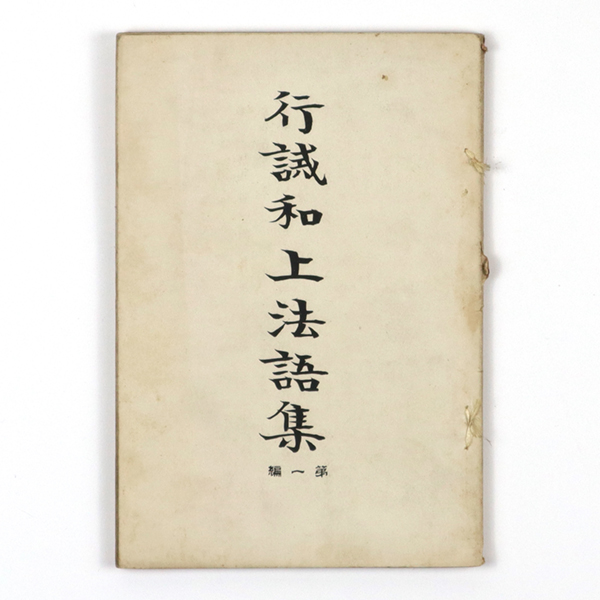 行誡和上法語集
第一編